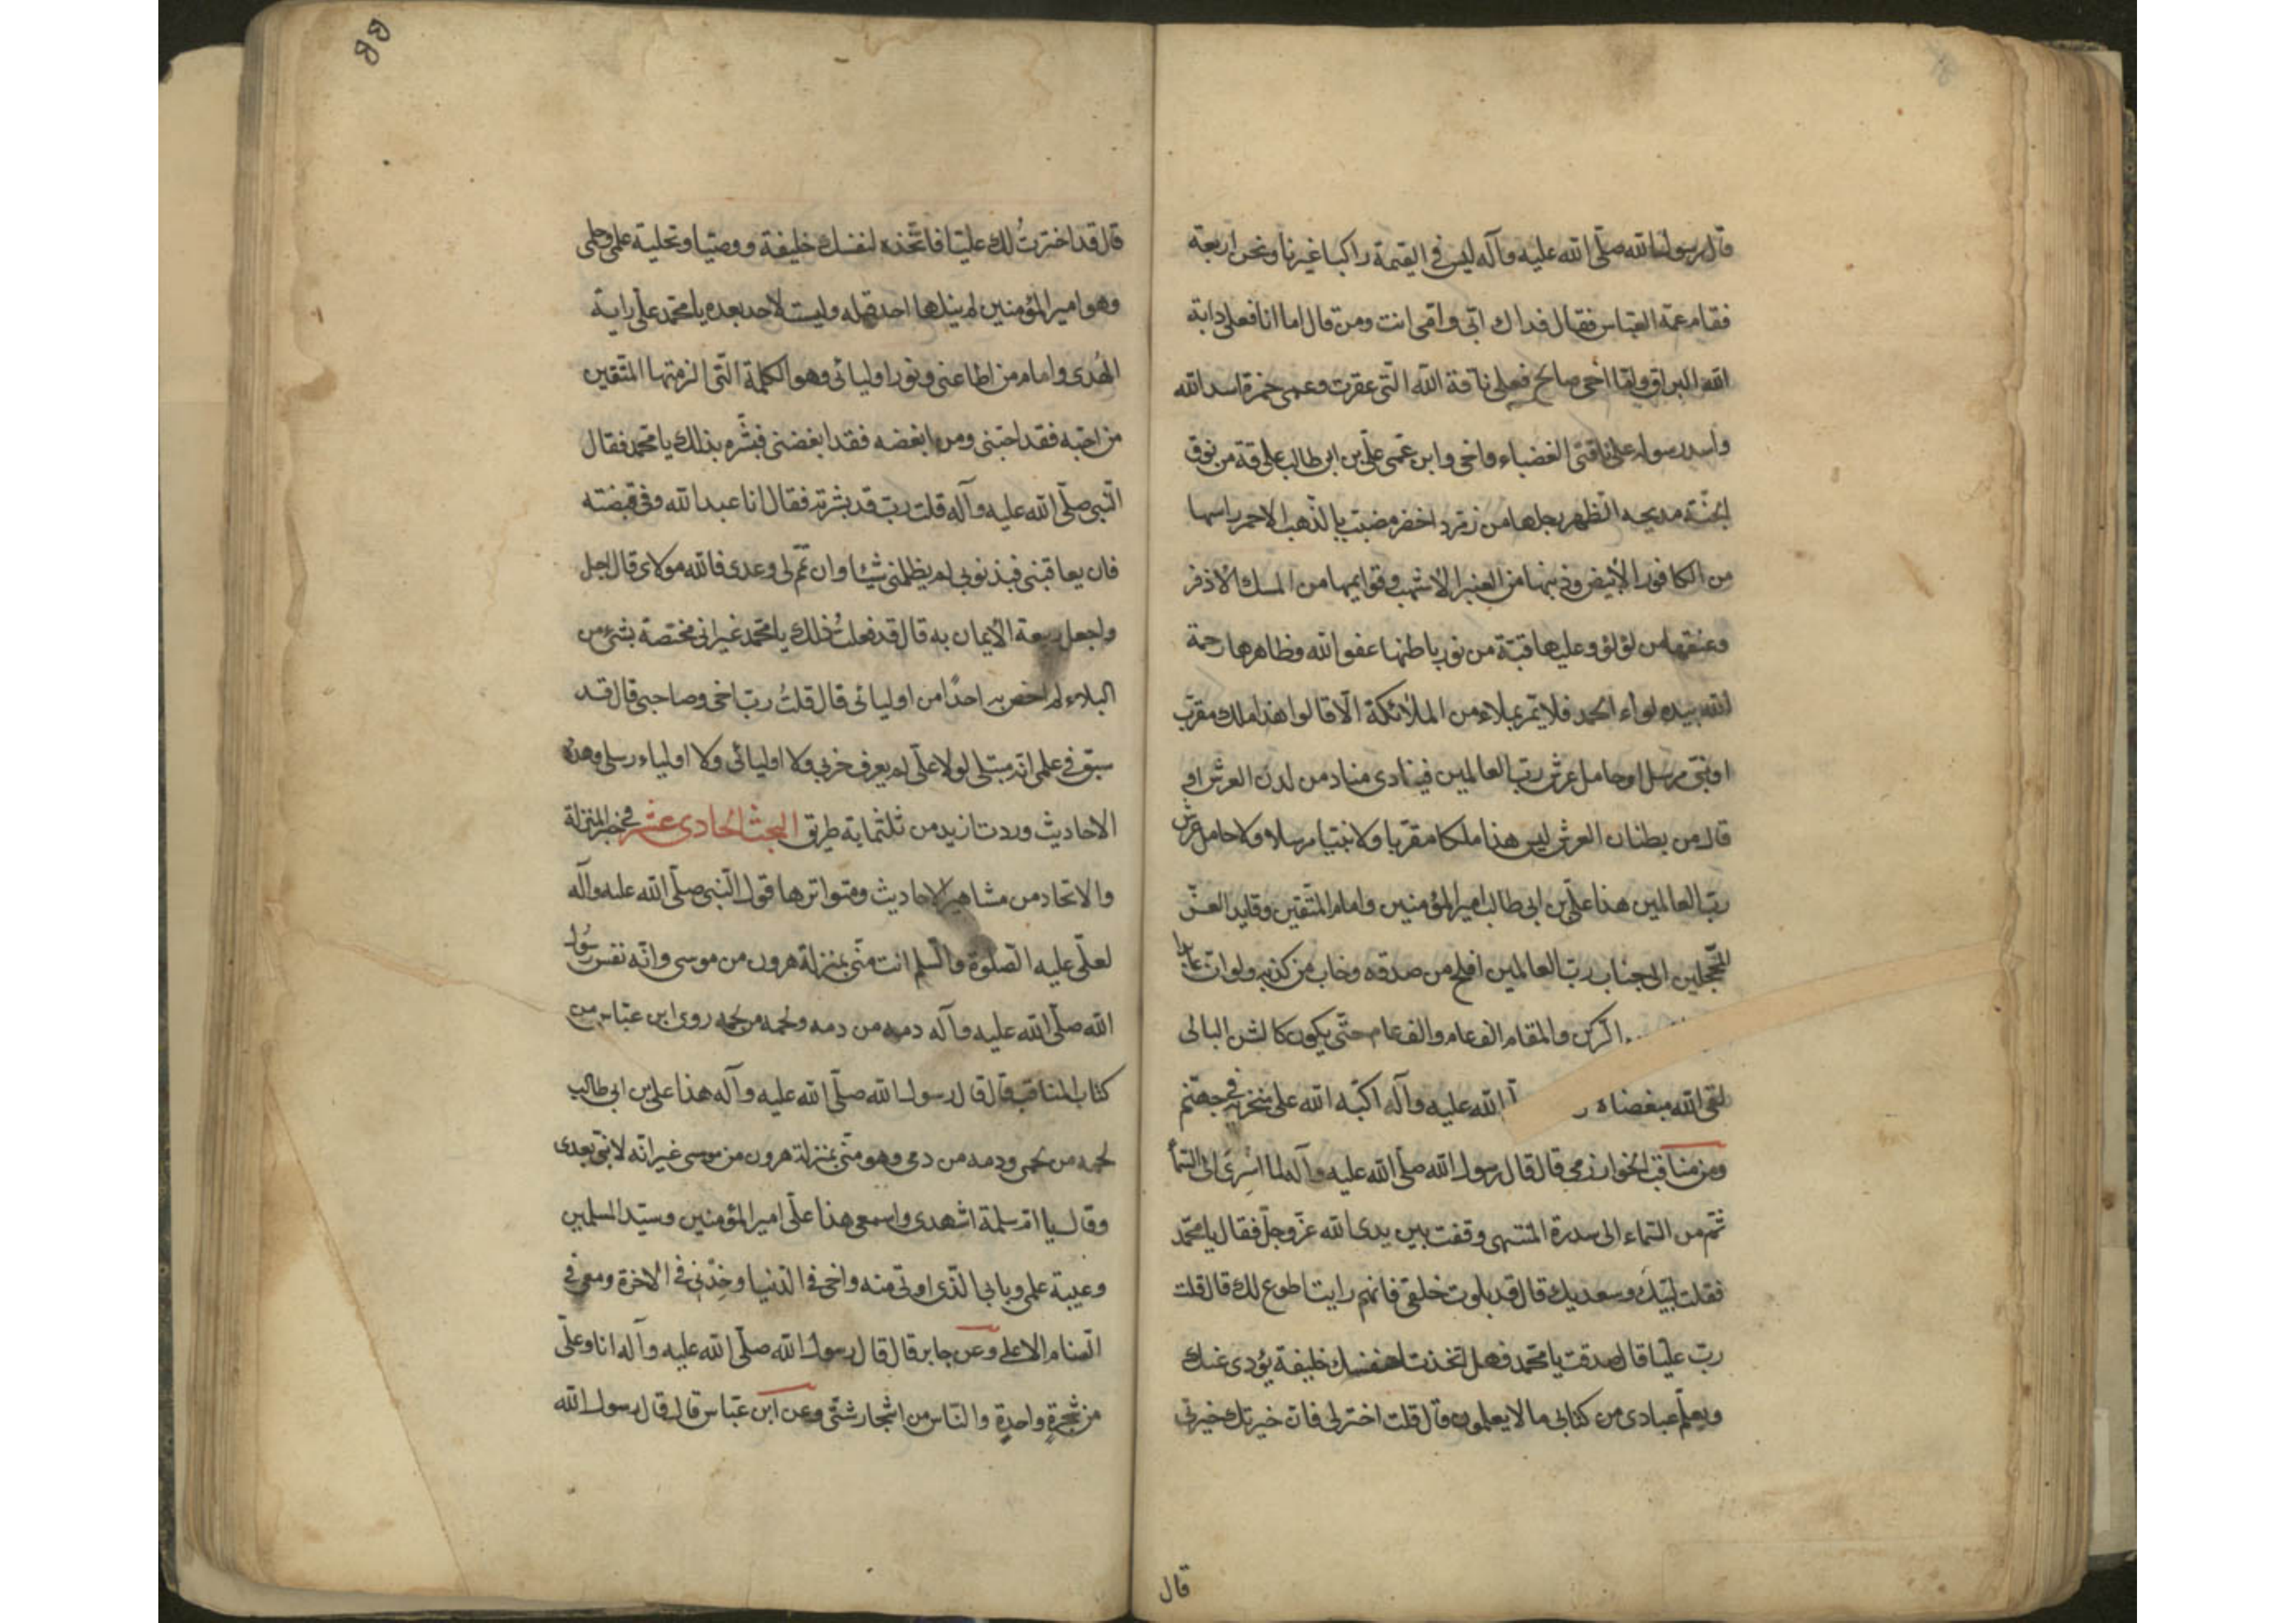 قال رسول الله صلّى الله عليه وآله ليس فى القيمة راكبا غيرنا ونحن اربعة
فقام عمّه العبّاس فقال فداك ابى وامّى انت ومن قال اما انا فعلى دابة
الله البراق وامّا اخى صالح فعلى ناقة الله التى عقرت وعمى حمزة اسد الله
واسد رسوله على ناقتى الغضباء واخى وابن عمّى علّى بن ابى طالب على ناقة من نوق
الجنّة مدبجة الظهر رجلها من زمرد اخضر مضبب بالذّهب الاحمر راسها
من الكافور الأبيض وذنبها من العنبر الأشهب وقوايمها من المسك الأذفر
وعنقها من لؤلؤ وعليها قبّة من نور باطنها عفو الله وظاهرها رحمة
الله بيده لواء الحمد فلا يمّر بملاء من الملائكة الّا قالوا هذا ملك مقرّب
او نبّى مرسل او حامل عرش ربّ العالمين فينادى مناد من لدن العرش او
قال من بطنان العرش ليس هذا ملكا مقرّبا ولا نبيّا مرسلا ولا حامل عرش
ربّ العالمين هذا علّى بن ابى طالب امير المؤمنين وامام المتّقين وقايد الغّر
المحّجلين الى جناب ربّ العالمين افلح من صدقه وخاب من كذبه ولو انّ عابدا
الركن والمقام الف عام والف عام حتّى يكون كالشن البالى
لقى الله مبغضا الله عليه وآله اكبّه الله على منخريه فى جهنّم
ومن مناقب الخوارزمى قال قال رسول الله صلّى الله عليه وآله لما اسْرِىَ الى السّمأ
ثّم من السّماء الى سدرة المنتهى وقفت بين يدى الله عزّ وجلّ فقال يا محّمد
فقلت لبّيك وسعديك قال قد بلوت خلقى فايهم رايت اطوع لك قال قلت
ربّ عليّا قال صدقت يا محّمد فهل اتّخذت لنفسك خليفة يؤدى عنك
ويعلّم عبادى من كتابى ما لا يعلمون قال قلت اختر لى فانّ خيرتك خيرتى
قال
قال قد اخترتُ لك عليّا فاتّخذه لنفسك خليفة ووصيّا ونحلته علمى وحلمى
وهو امير المؤمنين لم ينلها احد قبله وليست لاحد بعده يا محّمد علّى راية
الهُدى وامام من اطاعنى ونور اوليائى وهو الكلمة الّتى الزمتها المتّقين
من احبّه فقد احبّنى ومن ابغضه فقد ابغضنى فبشّره بذلك يا محّمد فقال
النّبى صلّى الله عليه وآله قلت ربّ قد بشّرته فقال انا عبد الله وفى قبضته
فان يعاقبنى فبذنوبى لم يظلمنى شيئا وان تمّم لى وعدى فالله مولاى قال اجل
واجعل ربيعة الأيمان به قال قد فعلتُ ذلك يا محّمد غير انى مختصة بشئ من
البلاء لم اخص به احدًا من اوليائى قال قلتُ ربّ اخى وصاحبى قال قد
سبق فى علمى انّه مبتلى لولا علّى لم يعرف حزبى ولا اوليائى ولا اولياء رسلى وهذه
الاحاديث وردت ازيد من ثلثماية طريق البحث الحادى عشر فى خبر المنزلة
والاتحاد من مشاهير الاحاديث ومتواترها قول النّبى صلّى الله عليه وآله
لعلّى عليه الصّلوة والسّلم انت منّى بمنزلة هرون من موسى وانّه نفس رسُول
الله صلّى الله عليه وآله دمه من دمه ولحمه من لحمه روى ابن عبّاس من
كتاب المناقب قال قال رسول الله صلّى الله عليه وآله هذا على بن ابى طالب
لحمه من لحمى ودمه من دمى وهو منّى بمنزلة هرون من موسى غير انّه لا نبّى بعدى
وقال يا امّ سلمة اشهدى واسمعى هذا علّى امير المؤمنين وسيّد المسلمين
وعيبة علمى وبابى الّذى اوتى منه واخى فى الدّنيا وخِدْنى فى الاخرة ومعى فى
السّنام الاعلى وعن جابر قال قال رسول الله صلّى الله عليه وآله انا وعلّى
من شجرةٍ واحدةٍ والنّاس من اشجار شتّى وعن ابن عبّاس قال قال رسول الله